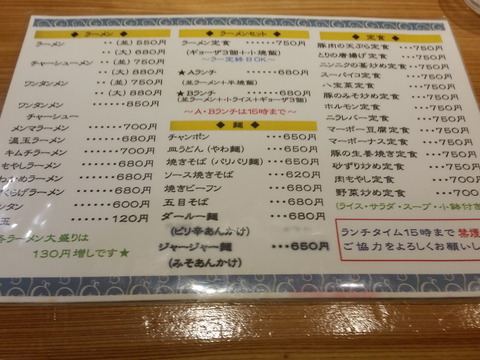 ◆ ラーメン ◆
ラーメン ・・(並) 550円
・・(大) 680円
チャーシューメン ・・(並) 780円
・・(大) 880円
ワンタンメン ・・(並) 780円
・・(大) 880円
ワンタンメン ・・・850円
チャーシュー
メンマラーメン ・・・・700円
温玉ラーメン ・・・・680円
キムチラーメン ・・・・700円
もやしラーメン ・・・・680円
わかめラーメン ・・・・680円
くらげラーメン ・・・・680円
ンタン ・・・・600円
玉 ・・・・・120円
各ラーメン大盛りは
130円増しです★
◆ ラーメンセット ◆
ラーメン定食 ・・・・・750円
(ギョーザ3個+小焼飯)
★Aランチ ・・・・・・680円
(並ラーメン+半焼飯)
★Bランチ ・・・・・・680円
(並ラーメン+小トライス+ギョーザ3個)
～A・Bランチは15時まで～
◆ 麺 ◆
チャンポン ・・・・・650円
皿うどん(やわ麺) ・・・・650円
焼きそば(パリパリ麺) ・・・650円
ソース焼きそば ・・・・620円
焼きビーフン ・・・・・680円
五目そば ・・・・・680円
ダールー麺 ・・・・・680円
(ピリ辛あんかけ)
ジャージャー麺 ・・・・650円
(みそあんかけ)
◆ 定食 ◆
豚肉の天ぷら定食 ・・・750円
とりの唐揚げ定食 ・・・750
ニンニクの葱炒め定食 ・・・750
スーパイコ定食 ・・・750
八宝菜定食 ・・・750
豚のみそ炒め定食 ・・・750
ホルモン定食 ・・・750
ニラレバー定食 ・・・750
マーボー豆腐定食 ・・・750
マーボーナス定食 ・・・750
豚の生姜焼き定食 ・・・750
砂ずり炒め定食 ・・・750
肉もやし定食 ・・・700
野菜炒め定食 ・・・700
(ライス・サラダ・スープ・小鉢付き
ランチタイム15時まで 禁煙
ご協力をよろしくお願いし